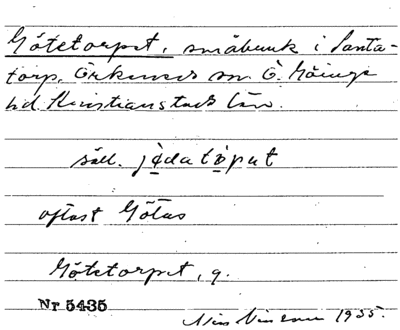 Götetorpet, småbruk i Santa-
torp. Örkeneds sn. Ö. Göinge
hd. Kristianstads län.
säll. jǿdatǿput
oftast Götas
Götetorpet, 9.
Nr 5435
1935.